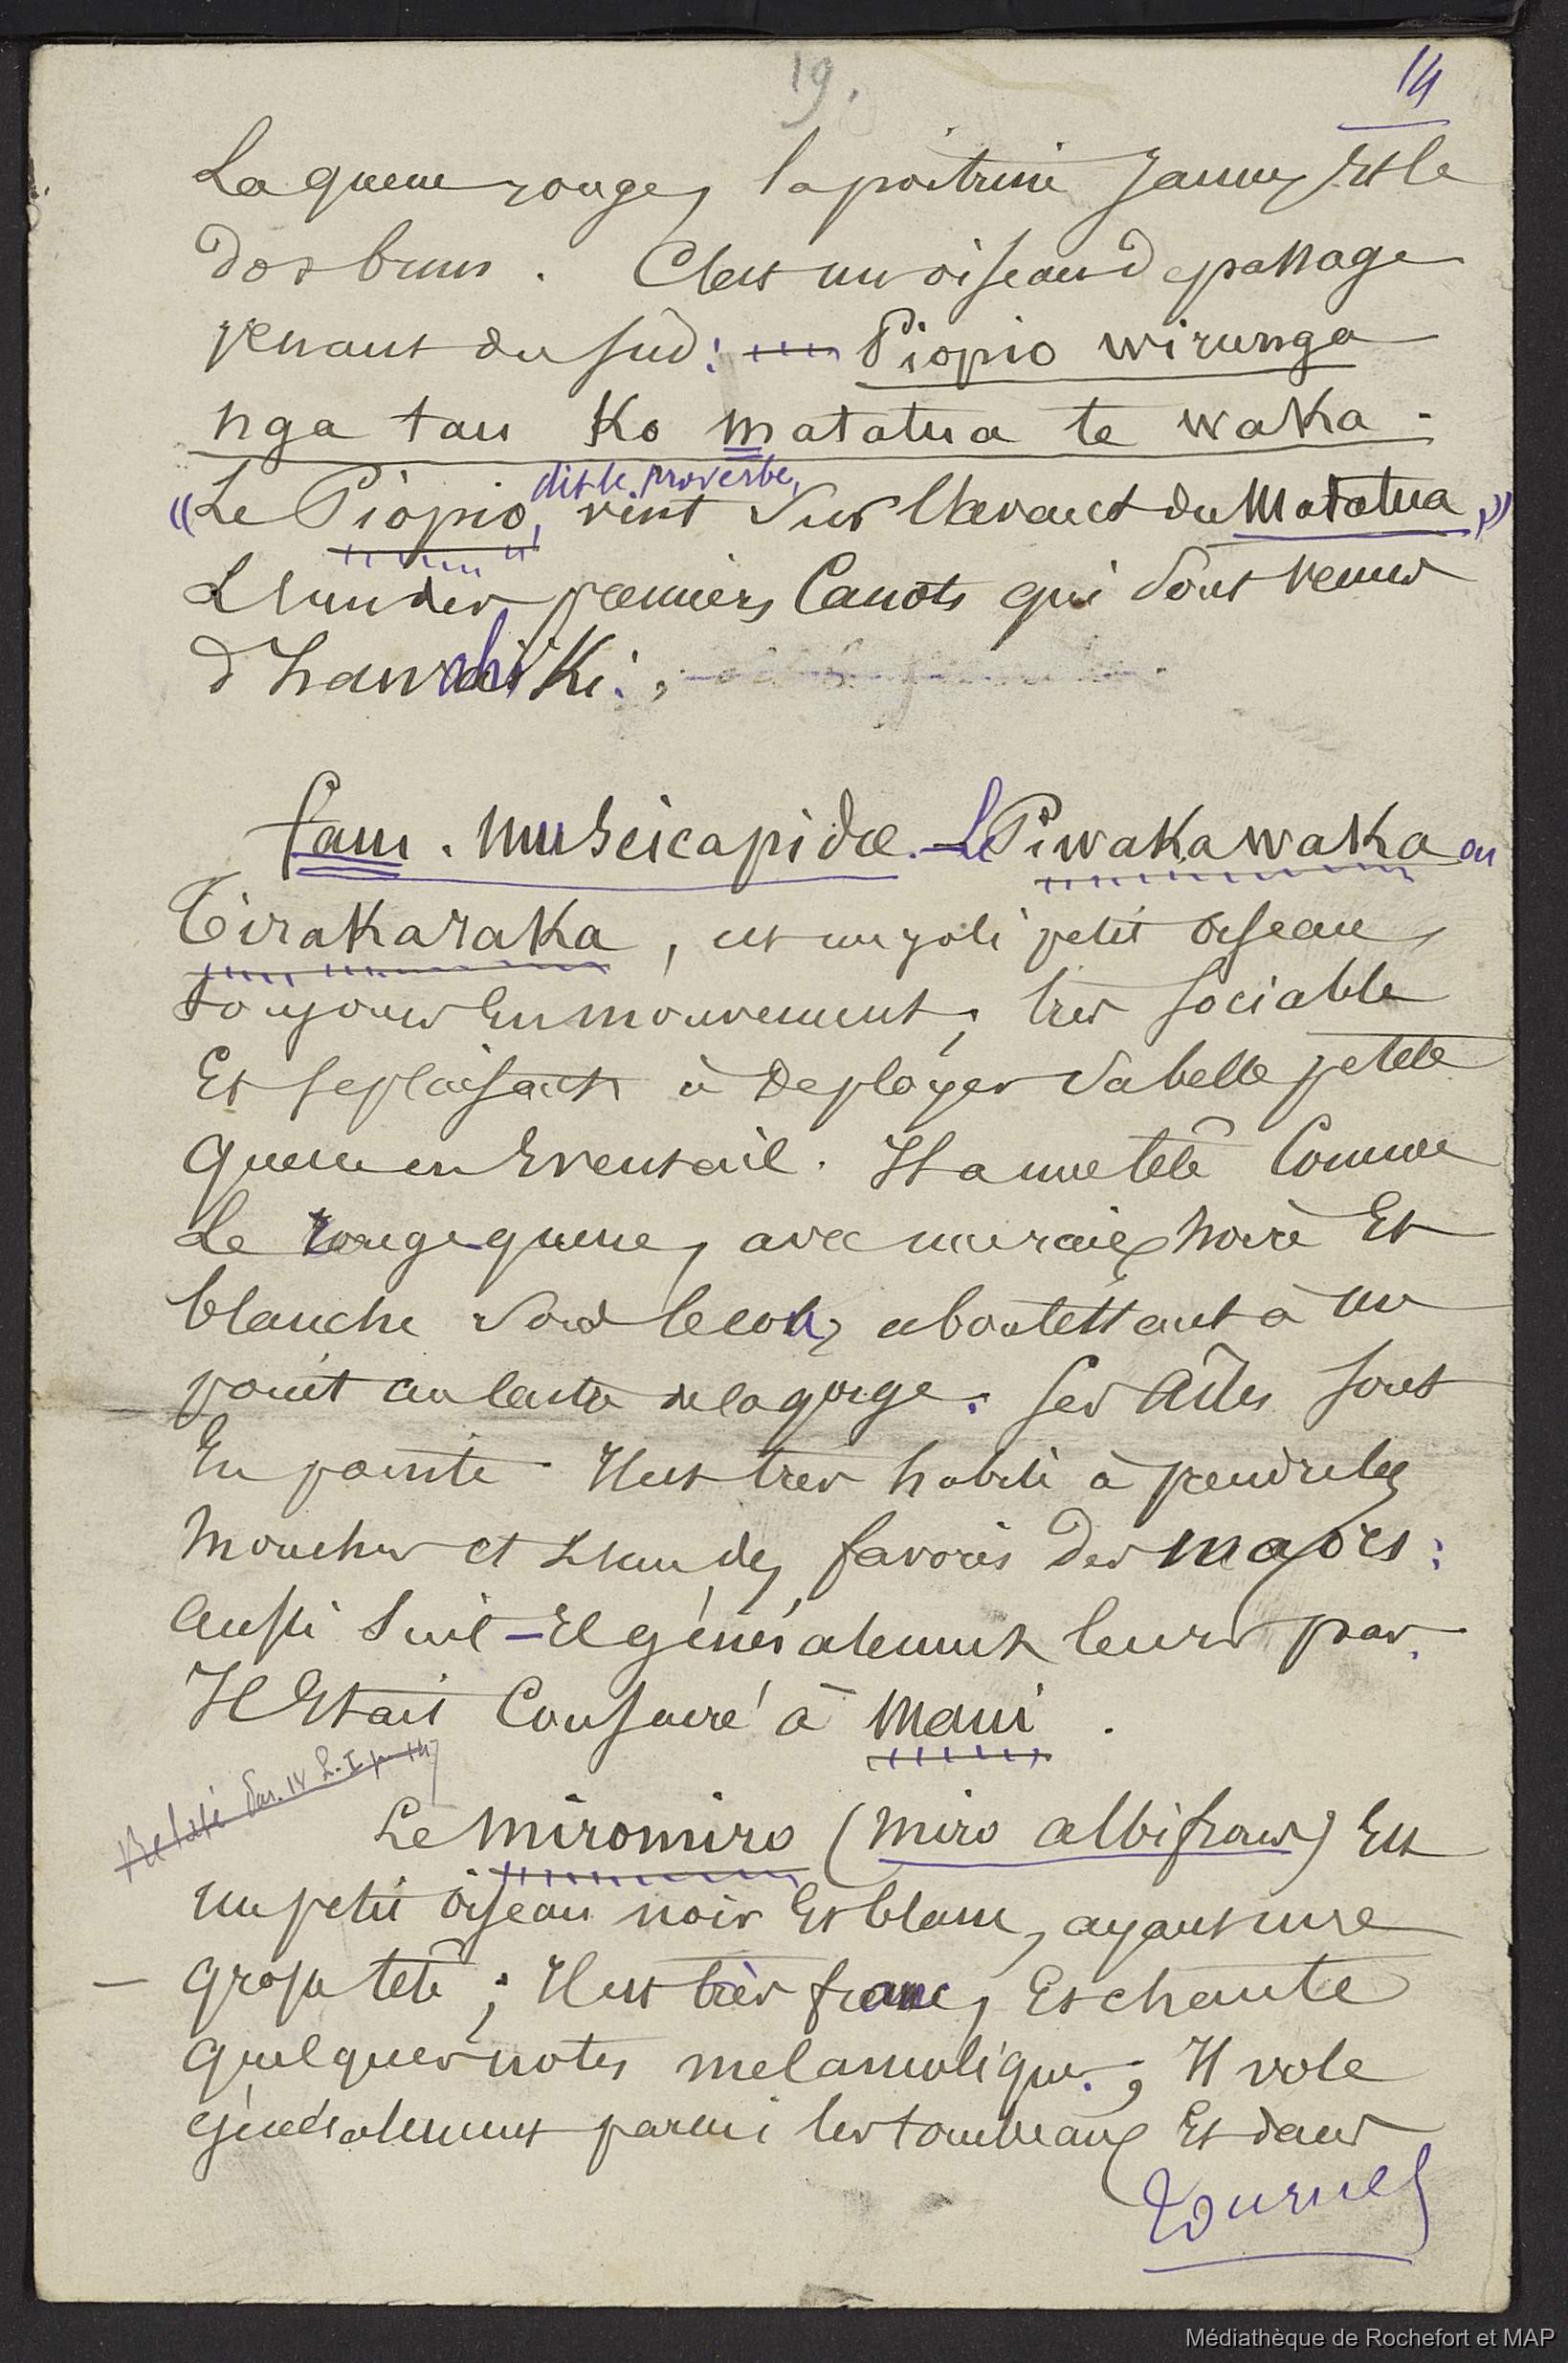 19.
14
La queue rouge, la poitrine jaune, Et le
dos brun. C'est un oiseau de passage
venant du sud: Piopio wirunga
nga tau Ko matatua te waka.
dit le proverbe,
"Le Piopio, vint sur l'avant du Matatua,"
L'un des premiers Canots qui sont venus
d'hawahiKi:,
fam. Muscicapidæ. - Le PiwaKawaKa ou
TiraKaraKa, est un joli petit oiseau,
toujours En mouvement; très sociable
Et se plaisant à Deployer sa belle petite
queue en Eventail. Il a une tête Comme
Le rouge-queue, avec une raie noire Et
blanche sous le cou, aboutissant à un
point au centre de la gorge. Ses Ailes sont
En pointe. Il est très habile à prendre les
Mouches et L'un des favoris des maoris:
Aussi suit-El généralement leurs pas.
Il Etait Consacré à Maui.
Relaté Par. 14 L. I p. 147
Le Miromiro (Miro albifrons) Est
un petit oiseau noir Et blanc, ayant une
- grosse tête; Il est très franc, Et chante
quelques notes melancolique.; Il vole
généralement parmi les tombeaux Et dans
tournez
Médiathèque de Rochefort et MAP